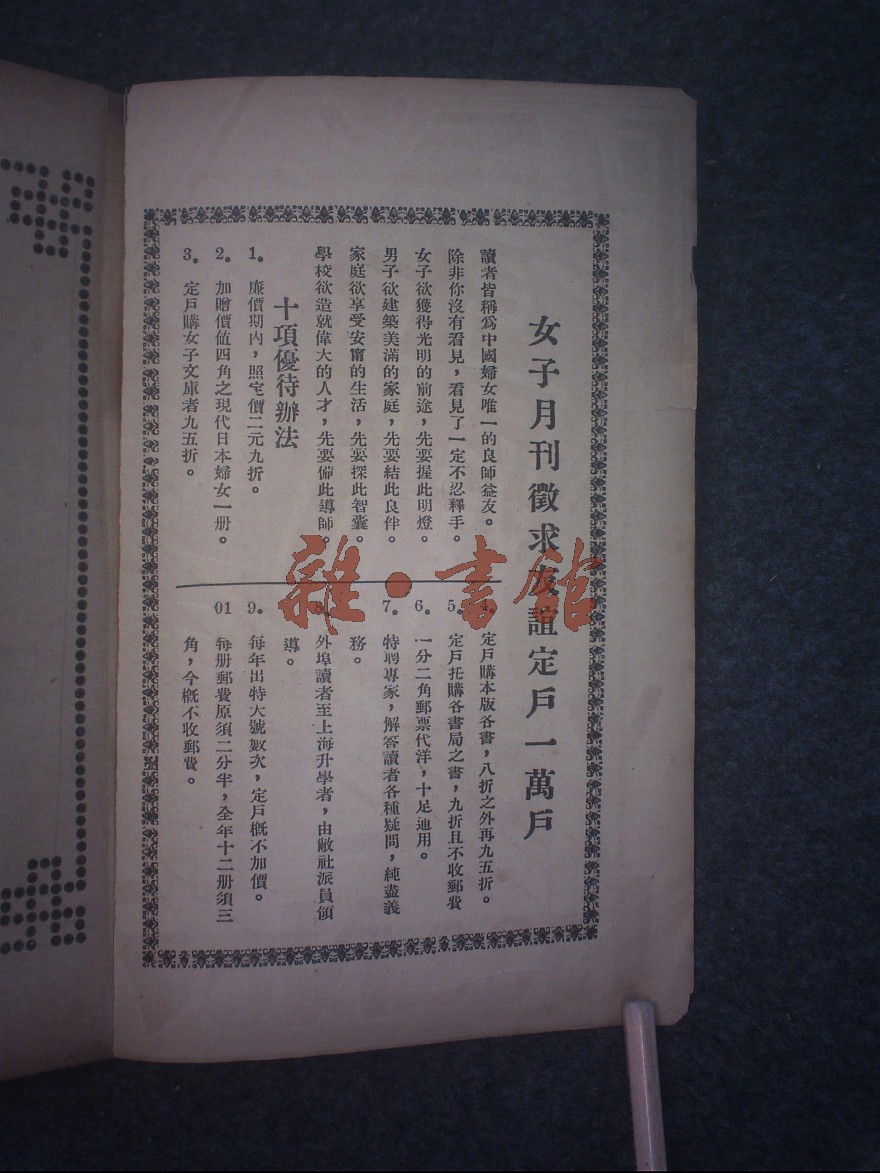 女子月刊徵求友誼定戶一萬戶
讀者皆稱為中國婦女唯一的良師益友。
除非你沒有看見，看見了一定不忍釋手。
女子欲獲得光明的前途，先要握此明燈。
男子欲建築美滿的家庭，先要結此良伴。
家庭欲享受安甯的生活，先要探此智囊。
學校欲造就偉大的人才，先要備此導師。
十項優待辦法
1。廉價期內，照定價二元九折。
2。加贈價值四角之現代日本婦女一册。
3。定戶購女子文庫者九五折。
4。定戶購本版各書，八折之外再九五折。
5。定戶托購各書局之書，九折且不收郵費
6。一分二角郵票代洋，十足通用。
7。特聘專家，解答讀者各種疑問，純盡義
務。
8。外埠讀者至上海升學者，由敝社派員領
導。
9。每年出特大號數次，定戶概不加價。
01 每册郵費原須二分半，全年十二册須三
角，今概不收郵費。
雜·書館